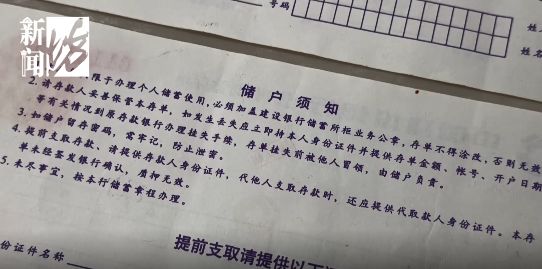 新闻坊
号码
姓名
姓名
储户须知
限于办理个人储蓄使用,必须加盖建设银行储蓄所柜业务公章,存单不得涂改,否则无效
2. 请存款人妥善保管本存单,如发生丢失应立即持本人身份证件并提供存单金额、帐号、开户日期
等有关情况到原存款银行办理挂失手续,存单挂失前被他人冒领,由储户负责。
3. 如储户留存密码,需牢记,防止泄密。
4. 提前支取存款,请提供存款人身份证件,代他人支取存款时,还应提供代取款人身份证件。本存
单未经签发银行确认,质押无效。
5. 未尽事宜,按本行储蓄章程办理。
提前支取请提供以下
份证件名称